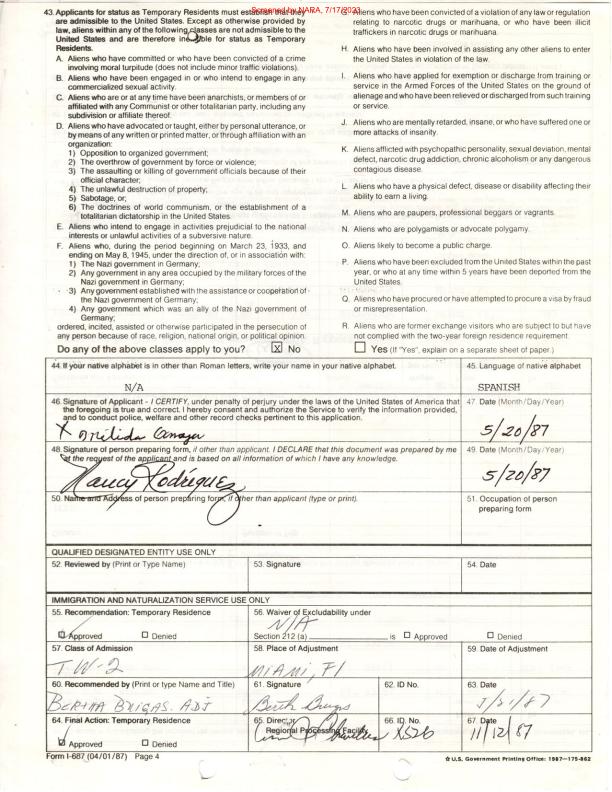 Screened by NARA, 7/17/2023
43. Applicants for status as Temporary Residents must establish that they
are admissible to the United States. Except as otherwise provided by
law, aliens within any of the following classes are not admissible to the
United States and are therefore ineligible for status as Temporary
Residents.
A. Aliens who have committed or who have been convicted of a crime
involving moral turpitude (does not include minor traffic violations).
B. Aliens who have been engaged in or who intend to engage in any
commercialized sexual activity.
C. Aliens who are or at any time have been anarchists, or members of or
affiliated with any Communist or other totalitarian party, including any
subdivision or affiliate thereof.
D. Aliens who have advocated or taught, either by personal utterance, or
by means of any written or printed matter, or through affiliation with an
organization:
1) Opposition to organized government;
2) The overthrow of government by force or violence;
3) The assaulting or killing of government officials because of their
official character;
4) The unlawful destruction of property;
5) Sabotage, or;
6) The doctrines of world communism, or the establishment of a
totalitarian dictatorship in the United States.
E. Aliens who intend to engage in activities prejudicial to the national
interests or unlawful activities of a subversive nature.
F. Aliens who, during the period beginning on March 23, 1933, and
ending on May 8, 1945, under the direction of, or in association with:
1) The Nazi government in Germany;
2) Any government in any area occupied by the military forces of the
Nazi government in Germany;
3) Any government established with the assistance or cooperation of
the Nazi government of Germany;
4) Any government which was an ally of the Nazi government of
Germany;
ordered, incited, assisted or otherwise participated in the persecution of
any person because of race, religion, national origin, or political opinion.
G. Aliens who have been convicted of a violation of any law or regulation
relating to narcotic drugs or marihuana, or who have been illicit
traffickers in narcotic drugs or marihuana.
H. Aliens who have been involved in assisting any other aliens to enter
the United States in violation of the law.
I. Aliens who have applied for exemption or discharge from training or
service in the Armed Forces of the United States on the ground of
alienage and who have been relieved or discharged from such training
or service.
J. Aliens who are mentally retarded, insane, or who have suffered one or
more attacks of insanity.
K. Aliens afflicted with psychopathic personality, sexual deviation, mental
defect, narcotic drug addiction, chronic alcoholism or any dangerous
contagious disease.
L. Aliens who have a physical defect, disease or disability affecting their
ability to earn a living.
M. Aliens who are paupers, professional beggars or vagrants.
N. Aliens who are polygamists or advocate polygamy.
O. Aliens likely to become a public charge.
P. Aliens who have been excluded from the United States within the past
year, or who at any time within 5 years have been deported from the
United States.
Q. Aliens who have procured or have attempted to procure a visa by fraud
or misrepresentation.
R. Aliens who are former exchange visitors who are subject to but have
not complied with the two-year foreign residence requirement.
Do any of the above classes apply to you? X No Yes (If "Yes", explain on a separate sheet of paper.)
44. If your native alphabet is in other than Roman letters, write your name in your native alphabet.
N/A
45. Language of native alphabet
SPANISH
46. Signature of Applicant - I CERTIFY, under penalty of perjury under the laws of the United States of America that
the foregoing is true and correct. I hereby consent and authorize the Service to verify the information provided,
and to conduct police, welfare and other record checks pertinent to this application.
X
47. Date (Month/Day/Year)
5/20/87
48. Signature of person preparing form, if other than applicant. I DECLARE that this document was prepared by me
at the request of the applicant and is based on all information of which I have any knowledge.
Nancy Rodriguez
49. Date (Month/Day/Year)
5/20/87
50. Name and Address of person preparing form, if other than applicant (type or print).
51. Occupation of person
preparing form
QUALIFIED DESIGNATED ENTITY USE ONLY
52. Reviewed by (Print or Type Name)
53. Signature
54. Date
IMMIGRATION AND NATURALIZATION SERVICE USE ONLY
55. Recommendation: Temporary Residence
Approved Denied
56. Waiver of Excludability under
N/A
Section 212 (a) is Approved Denied
57. Class of Admission
TW-2
58. Place of Adjustment
MIAMI, Fl
59. Date of Adjustment
60. Recommended by (Print or type Name and Title)
BERTHA ADJ
61. Signature
62. ID No.
63. Date
64. Final Action: Temporary Residence
Approved Denied
65. Director
Regional Processing Facility
66. ID. No.
X526
67. Date
11/12/87
Form I-687 (04/01/87) Page 4
☆ U.S. Government Printing Office: 1987—175-862